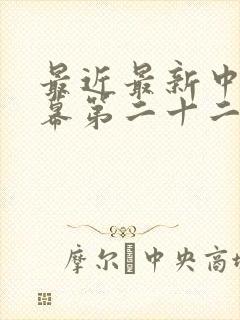 最近最新中
幕第二十二
摩尔 中央商场